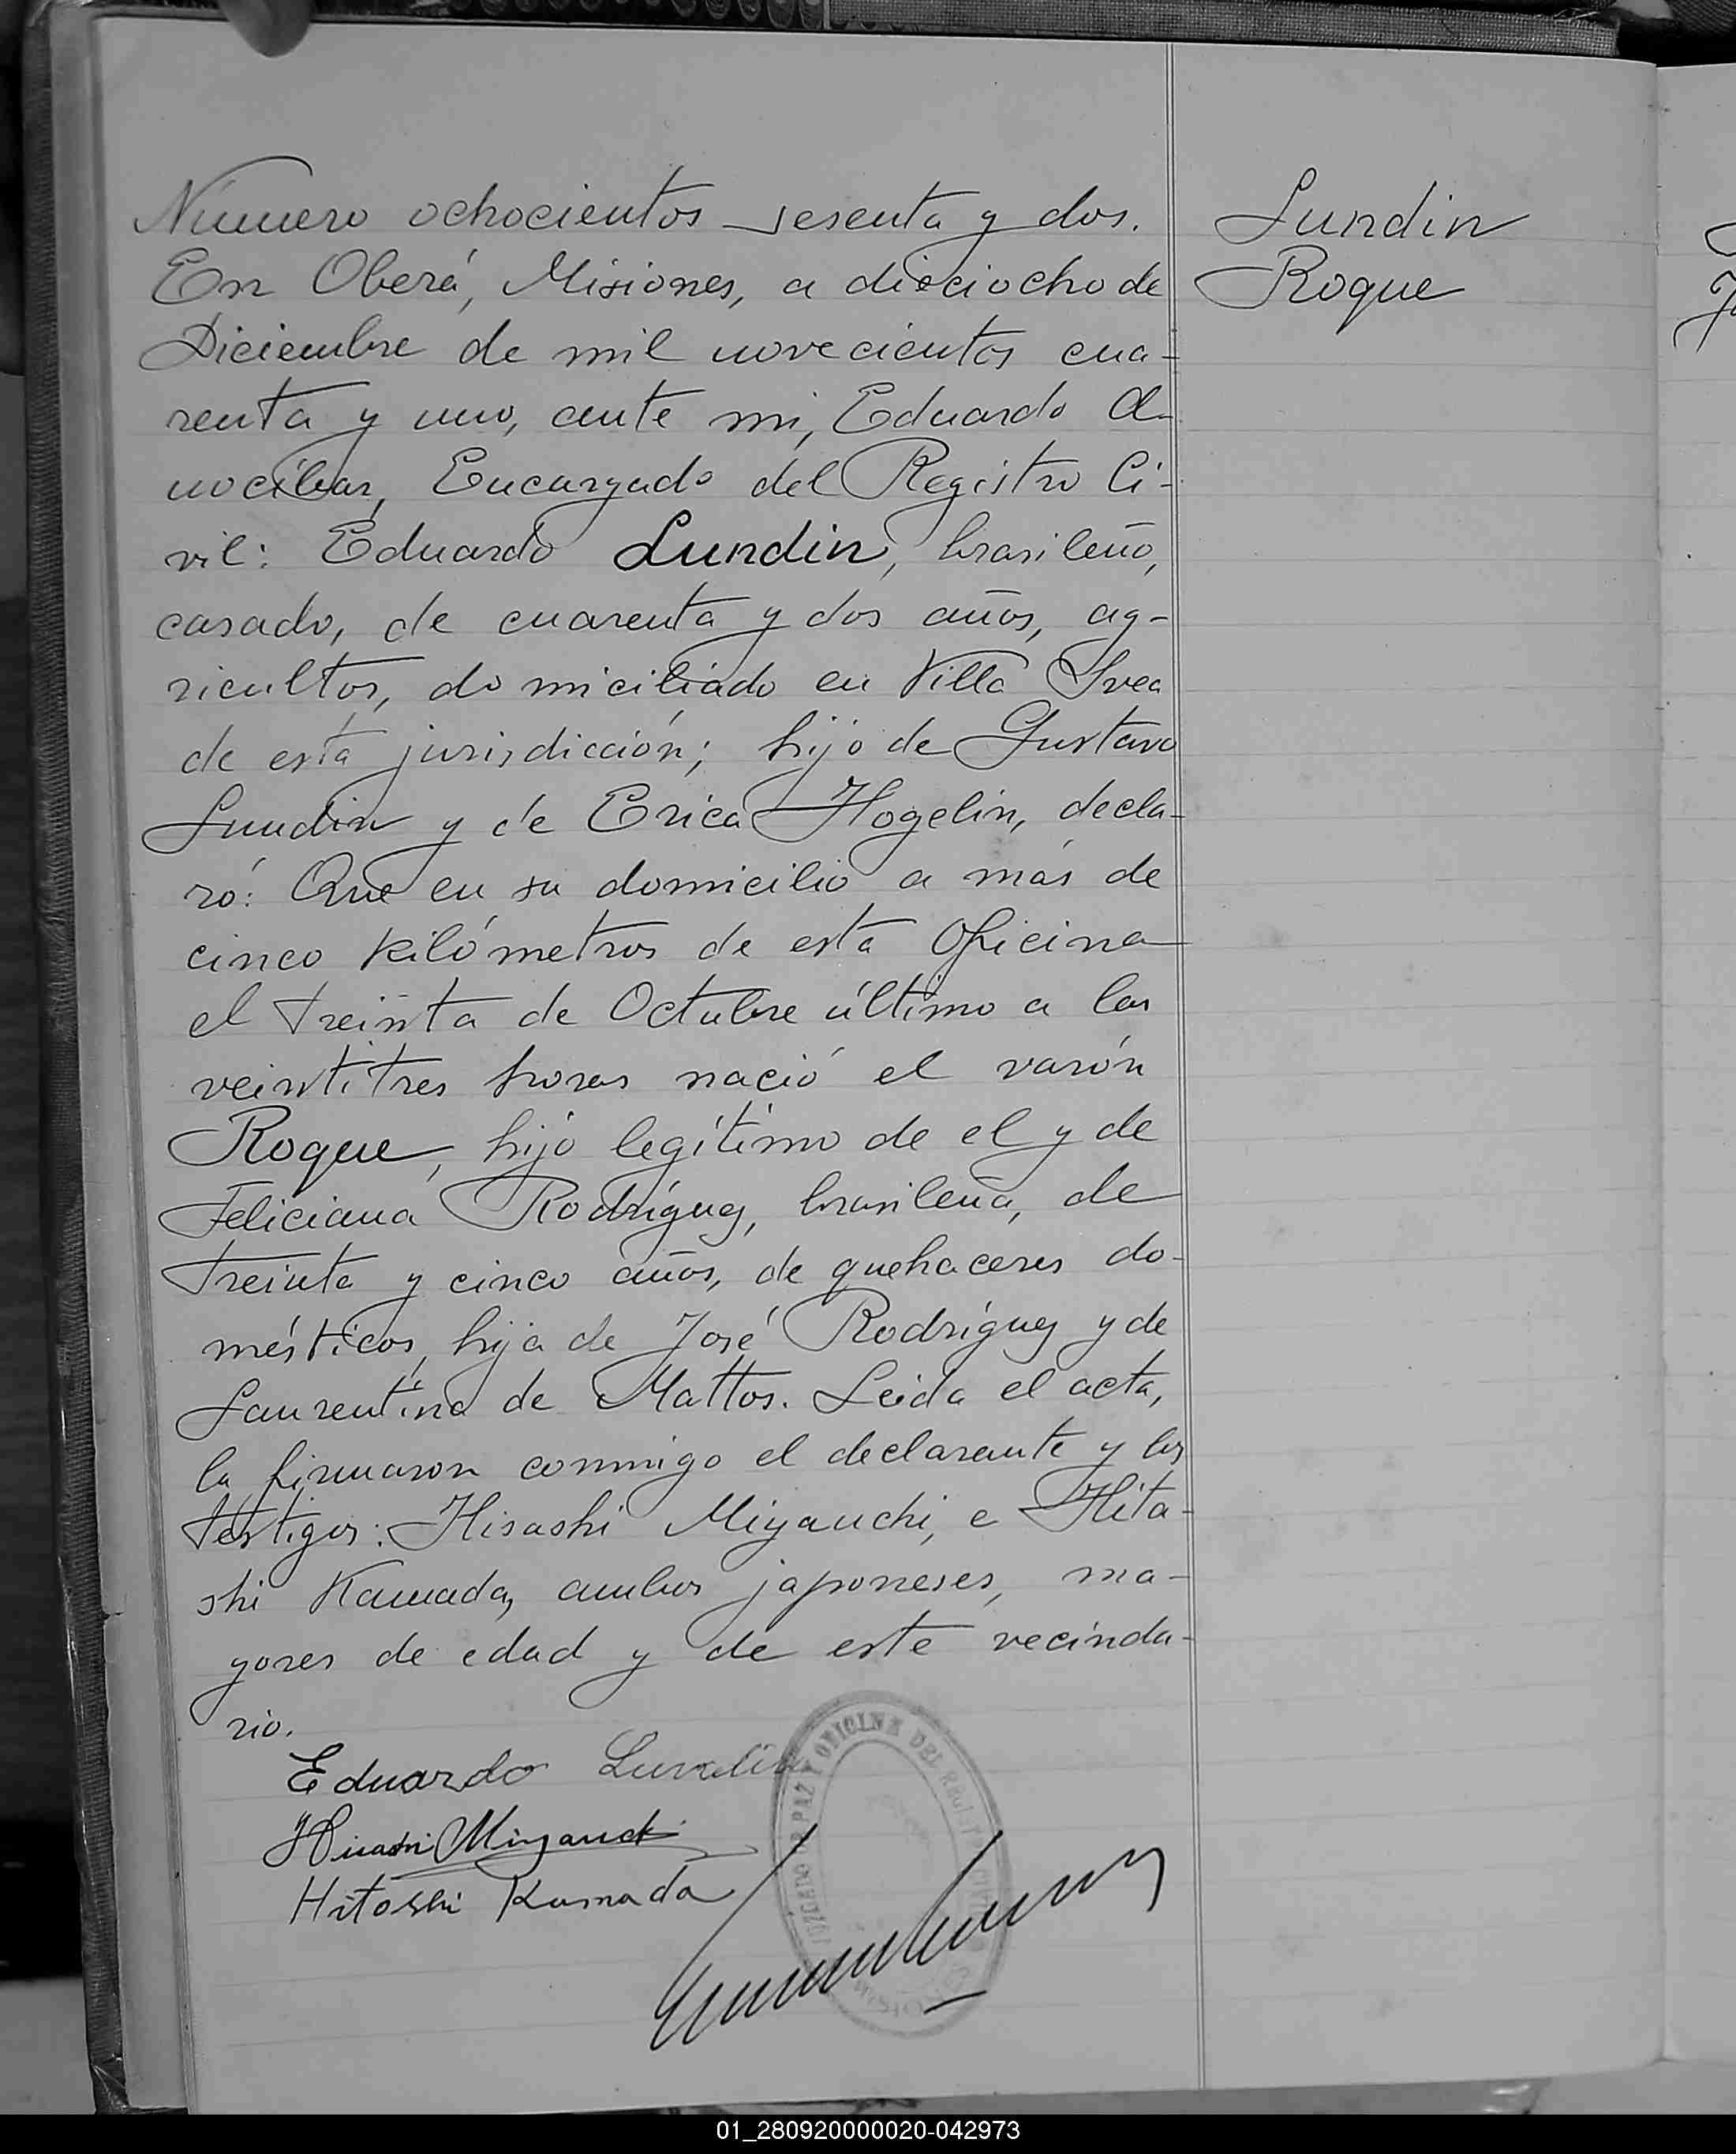 Número ochocientos sesenta y dos.
En Oberá, Misiones, a dieciocho de
Diciembre de mil novecientos cua-
renta y uno, ante mi, Eduardo A-
nocíbar, Encargado del Registro Ci-
vil: Eduardo Lundin, brasileño,
casado, de cuarenta y dos años, ag-
ricultor, domiciliado en Villa Svea
de esta jurisdicción; hijo de Gustavo
Lundin y de Erica Hogelin, decla-
ró: Que en su domicilio a más de
cinco kilómetros de esta Oficina
el treinta de Octubre último a las
veintitres horas nació el varón
Roque, hijo legítimo de el y de
Feliciana Rodríguez, brasileña, de
treinta y cinco años, de quehaceres do-
mésticos, hija de José Rodríguez y de
Laurentina de Mattos. Leida el acta,
la firmaron conmigo el declarante y los
testigos: Hisashi Miyauchi, e Hita-
shi Kamada, ambos japoneses, ma-
yores de edad y de este vecinda-
rio.
Eduardo Lundin
Hisashi Miyauchi
Hitoshi Kamada
JUZGADO DE PAZ Y OFICINA DEL
Lundin
Roque
01_280920000020-042973